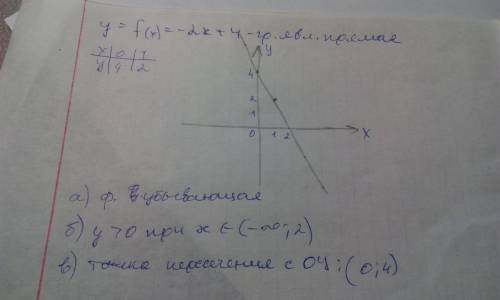 y = f(x) = -2x + 4 - гр. явл. прямая
x | 0 | 1
y | 4 | 2
y
4
2
1
0 1 2 x
а) ф. убывающая
б) y > 0 при x ∈ (-∞; 2)
в) точка пересечения с OY: (0; 4)